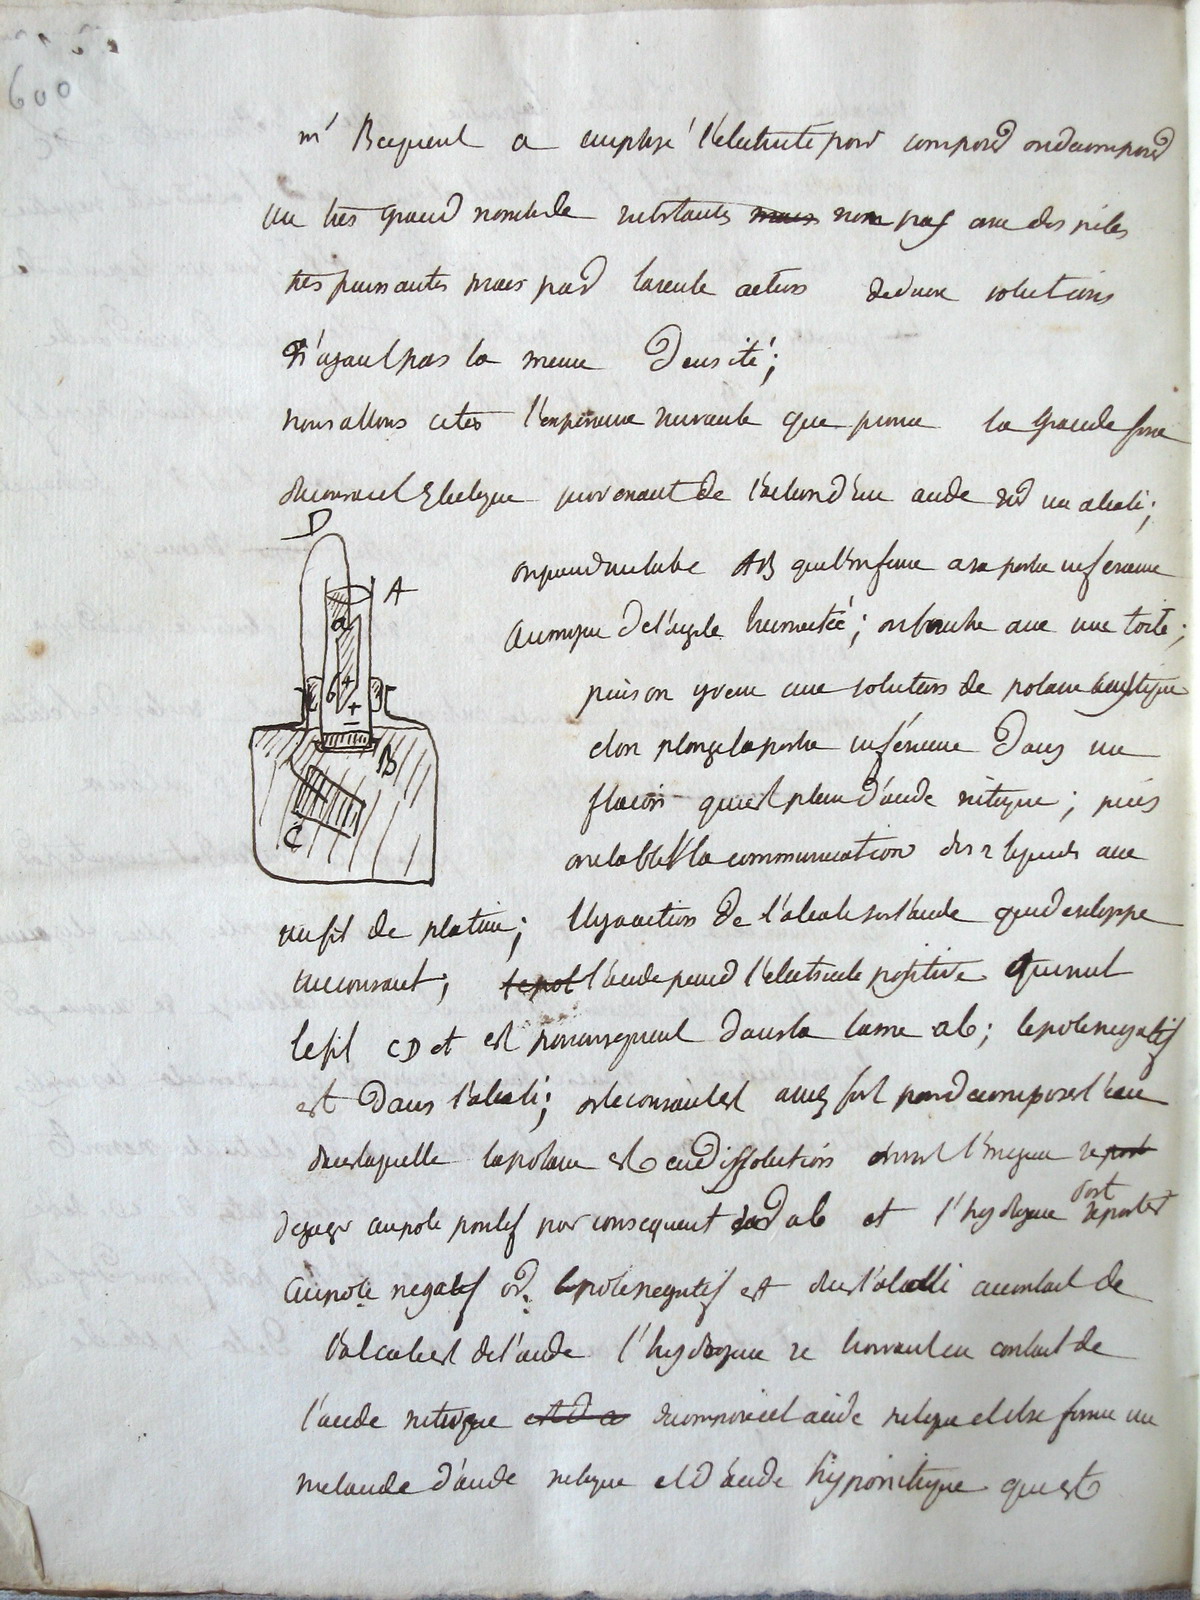 600
mr Becquerel a employé l'electricité pour composer ou decomposer
un tres grand nombre de substances mais non pas avec des piles
tres puissantes mais par la seule action de deux solutions
n'ayant pas la meme densité;
nous allons citer l'experience suivante que prouve la grande force
du courant Electrique provenant de l'action d'un acide sur un alcali;
D
on prend un tube AB que l'on ferme a sa partie inferieure
A
au moyen de l'argile humectée; on bouche avec une toile;
a
puis on y verse une solution de potasse caustique
b
+
et on plonge la partie inférieure dans un
B
flacon qui est plein d'acide nitrique; puis
C
on etablit la communication des 2 liquides avec
un fil de platine; il y a action de l'alcali sur l'acide qui developpe
un courant; le pol l'acide prend l'electricité positive qui suit
le fil CD et est par consequent dans la lame ab; le pole negatif
est dans l'alcali; or le courant est assez fort pour decomposer l'eau
dans laquelle la potasse est en dissolution donc l'oxigene se port
degager au pole positif par consequent sur ab et l'hydrogene doit se porter
au pole negatif or le pole negatif est dans l'alcali au contact de
l'alcali et de l'acide l'hydrogene se trouvant en contact de
l'acide nitrique decompose cet acide nitrique et il se forme un
melange d'acide nitrique et d'acide hyponitrique qui est